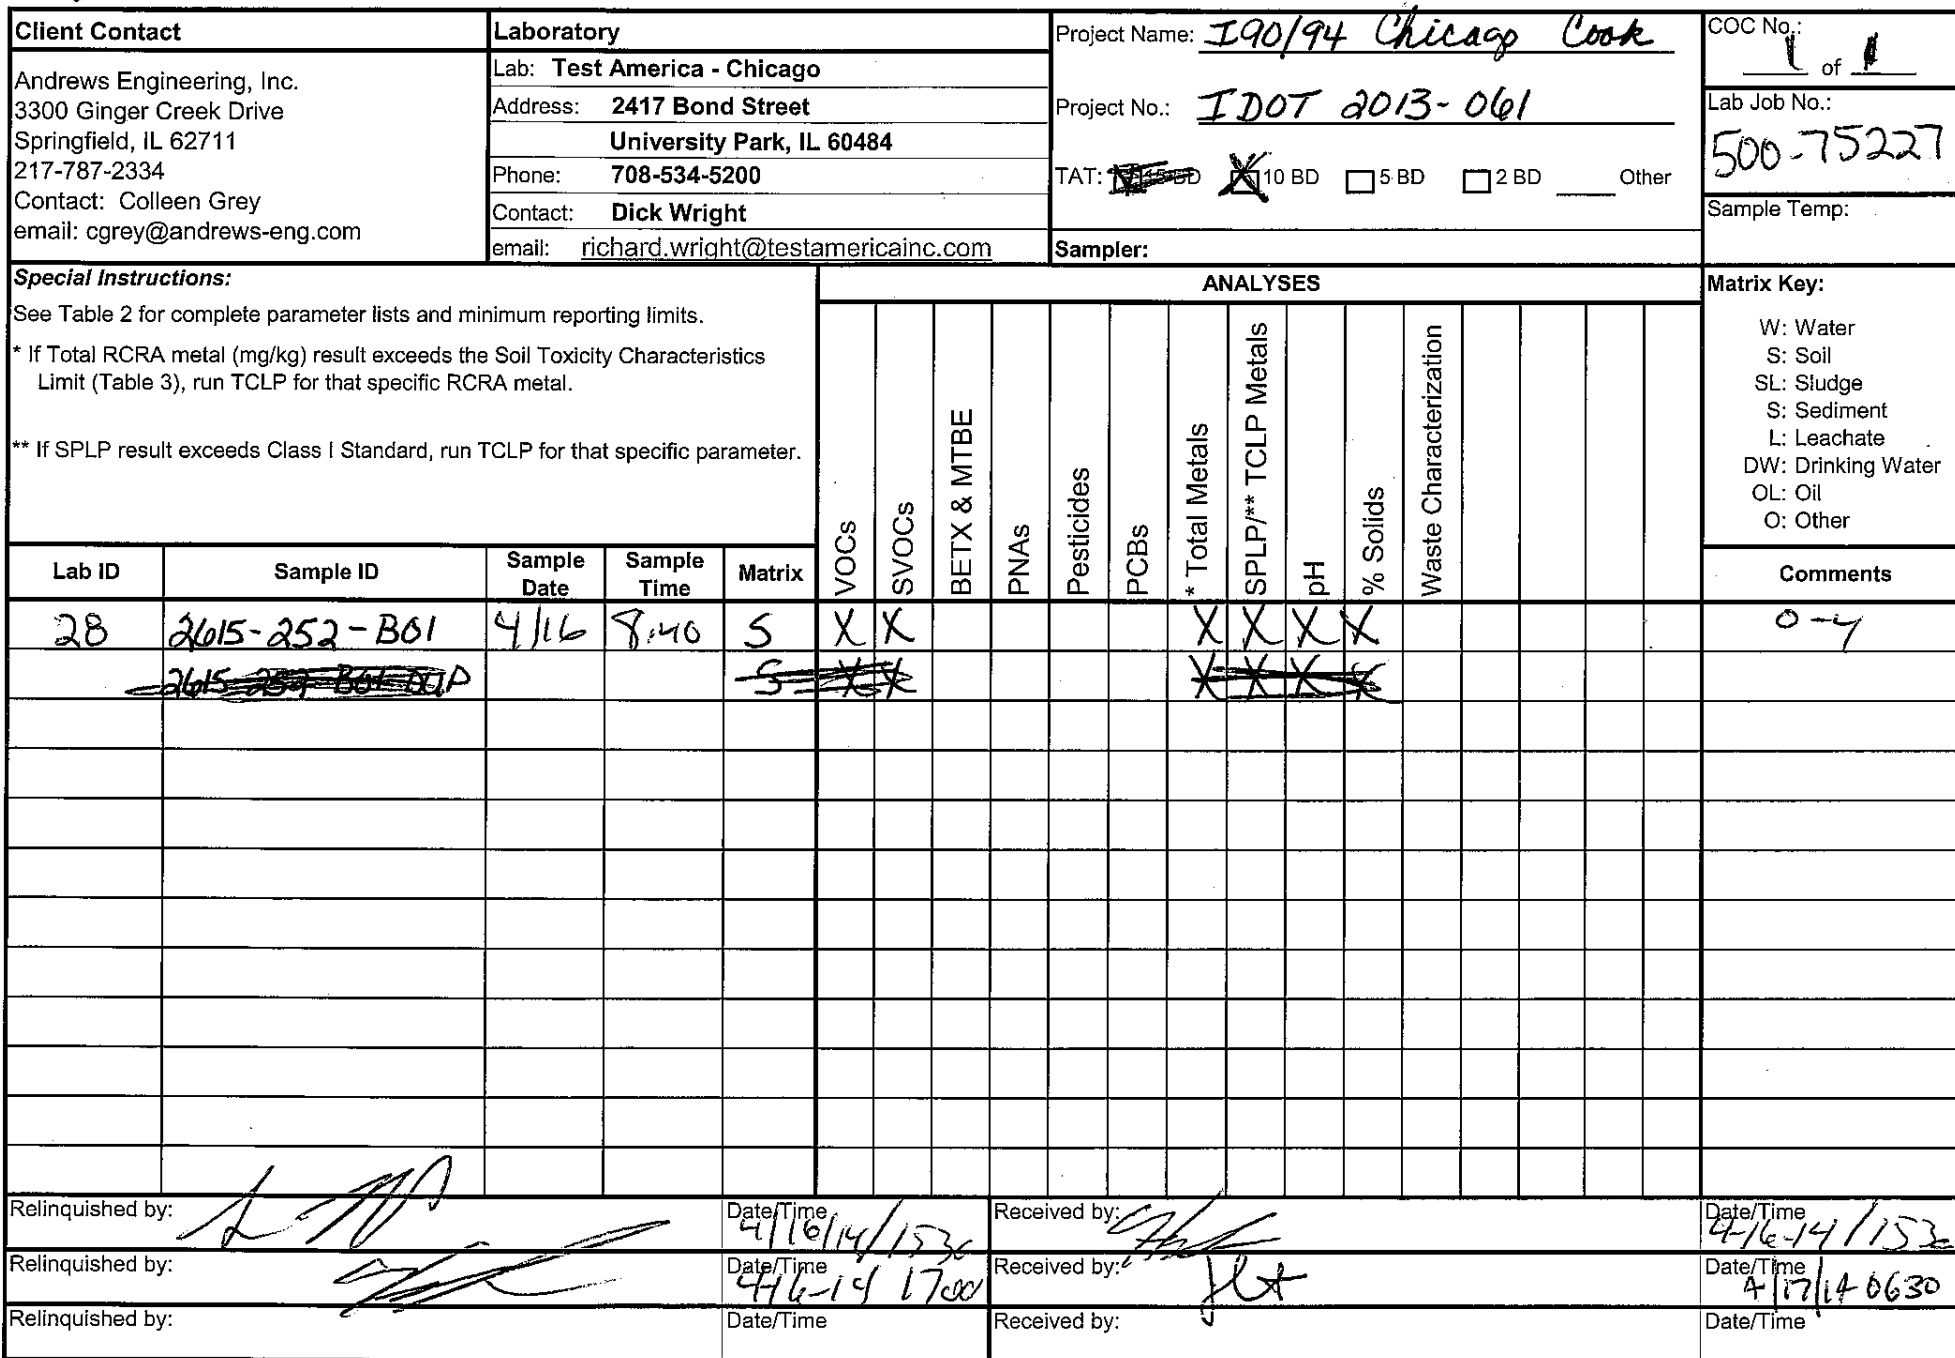 Client Contact
Andrews Engineering, Inc.
3300 Ginger Creek Drive
Springfield, IL 62711
217-787-2334
Contact: Colleen Grey
email: cgrey@andrews-eng.com
Laboratory
Lab: Test America - Chicago
Address: 2417 Bond Street
University Park, IL 60484
Phone: 708-534-5200
Contact: Dick Wright
email: richard.wright@testamericainc.com
Project Name: I90/94 Chicago Cook
Project No.: IDOT 2013-061
TAT: 15 BD X 10 BD 5 BD 2 BD ____ Other
Sampler:
COC No.:
1 of 1
Lab Job No.:
500-75227
Sample Temp:
Special Instructions:
See Table 2 for complete parameter lists and minimum reporting limits.
* If Total RCRA metal (mg/kg) result exceeds the Soil Toxicity Characteristics
Limit (Table 3), run TCLP for that specific RCRA metal.
** If SPLP result exceeds Class I Standard, run TCLP for that specific parameter.
ANALYSES
VOCs
SVOCs
BETX & MTBE
PNAs
Pesticides
PCBs
* Total Metals
SPLP/** TCLP Metals
pH
% Solids
Waste Characterization
Matrix Key:
W: Water
S: Soil
SL: Sludge
S: Sediment
L: Leachate
DW: Drinking Water
OL: Oil
O: Other
Lab ID Sample ID Sample Date Sample Time Matrix Comments
28 2615-252-B01 4/16 8:40 S X X X X X X 0-4
2615-252-B01 DUP S X X X X X X
Relinquished by: Date/Time 4/16/14/1530 Received by: Date/Time 4-16-14/1530
Relinquished by: Date/Time 4-16-14 1700 Received by: Date/Time 4/17/14 0630
Relinquished by: Date/Time Received by: Date/Time